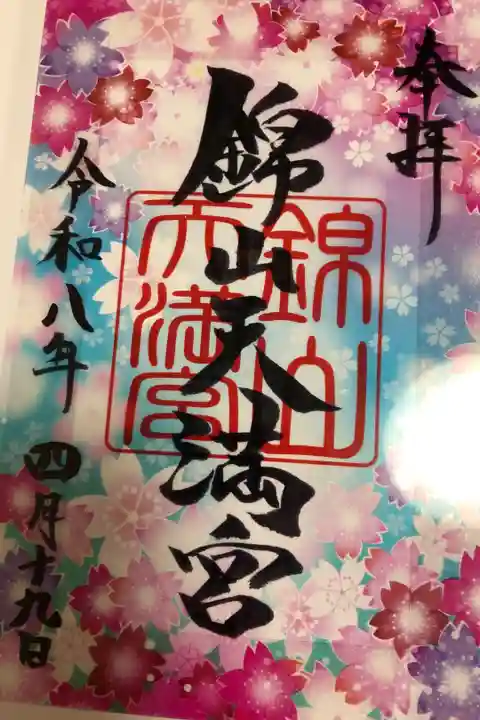 奉拝
錦山天満宮
錦山
天満宮
令和八年 四月十九日